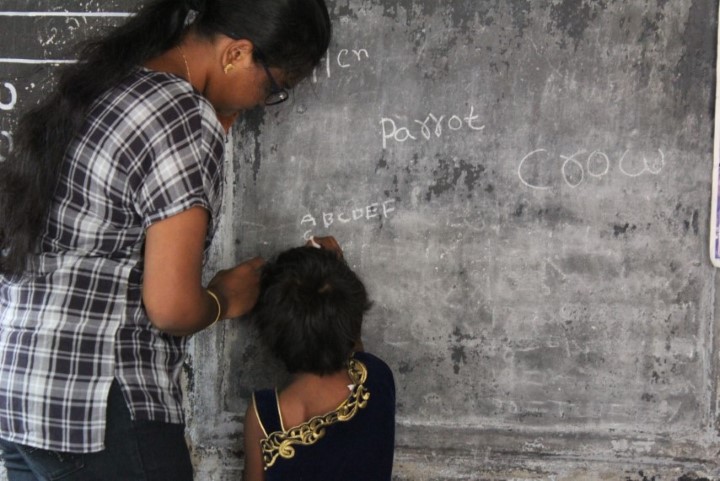 Parrot
Crow
ABCDEF